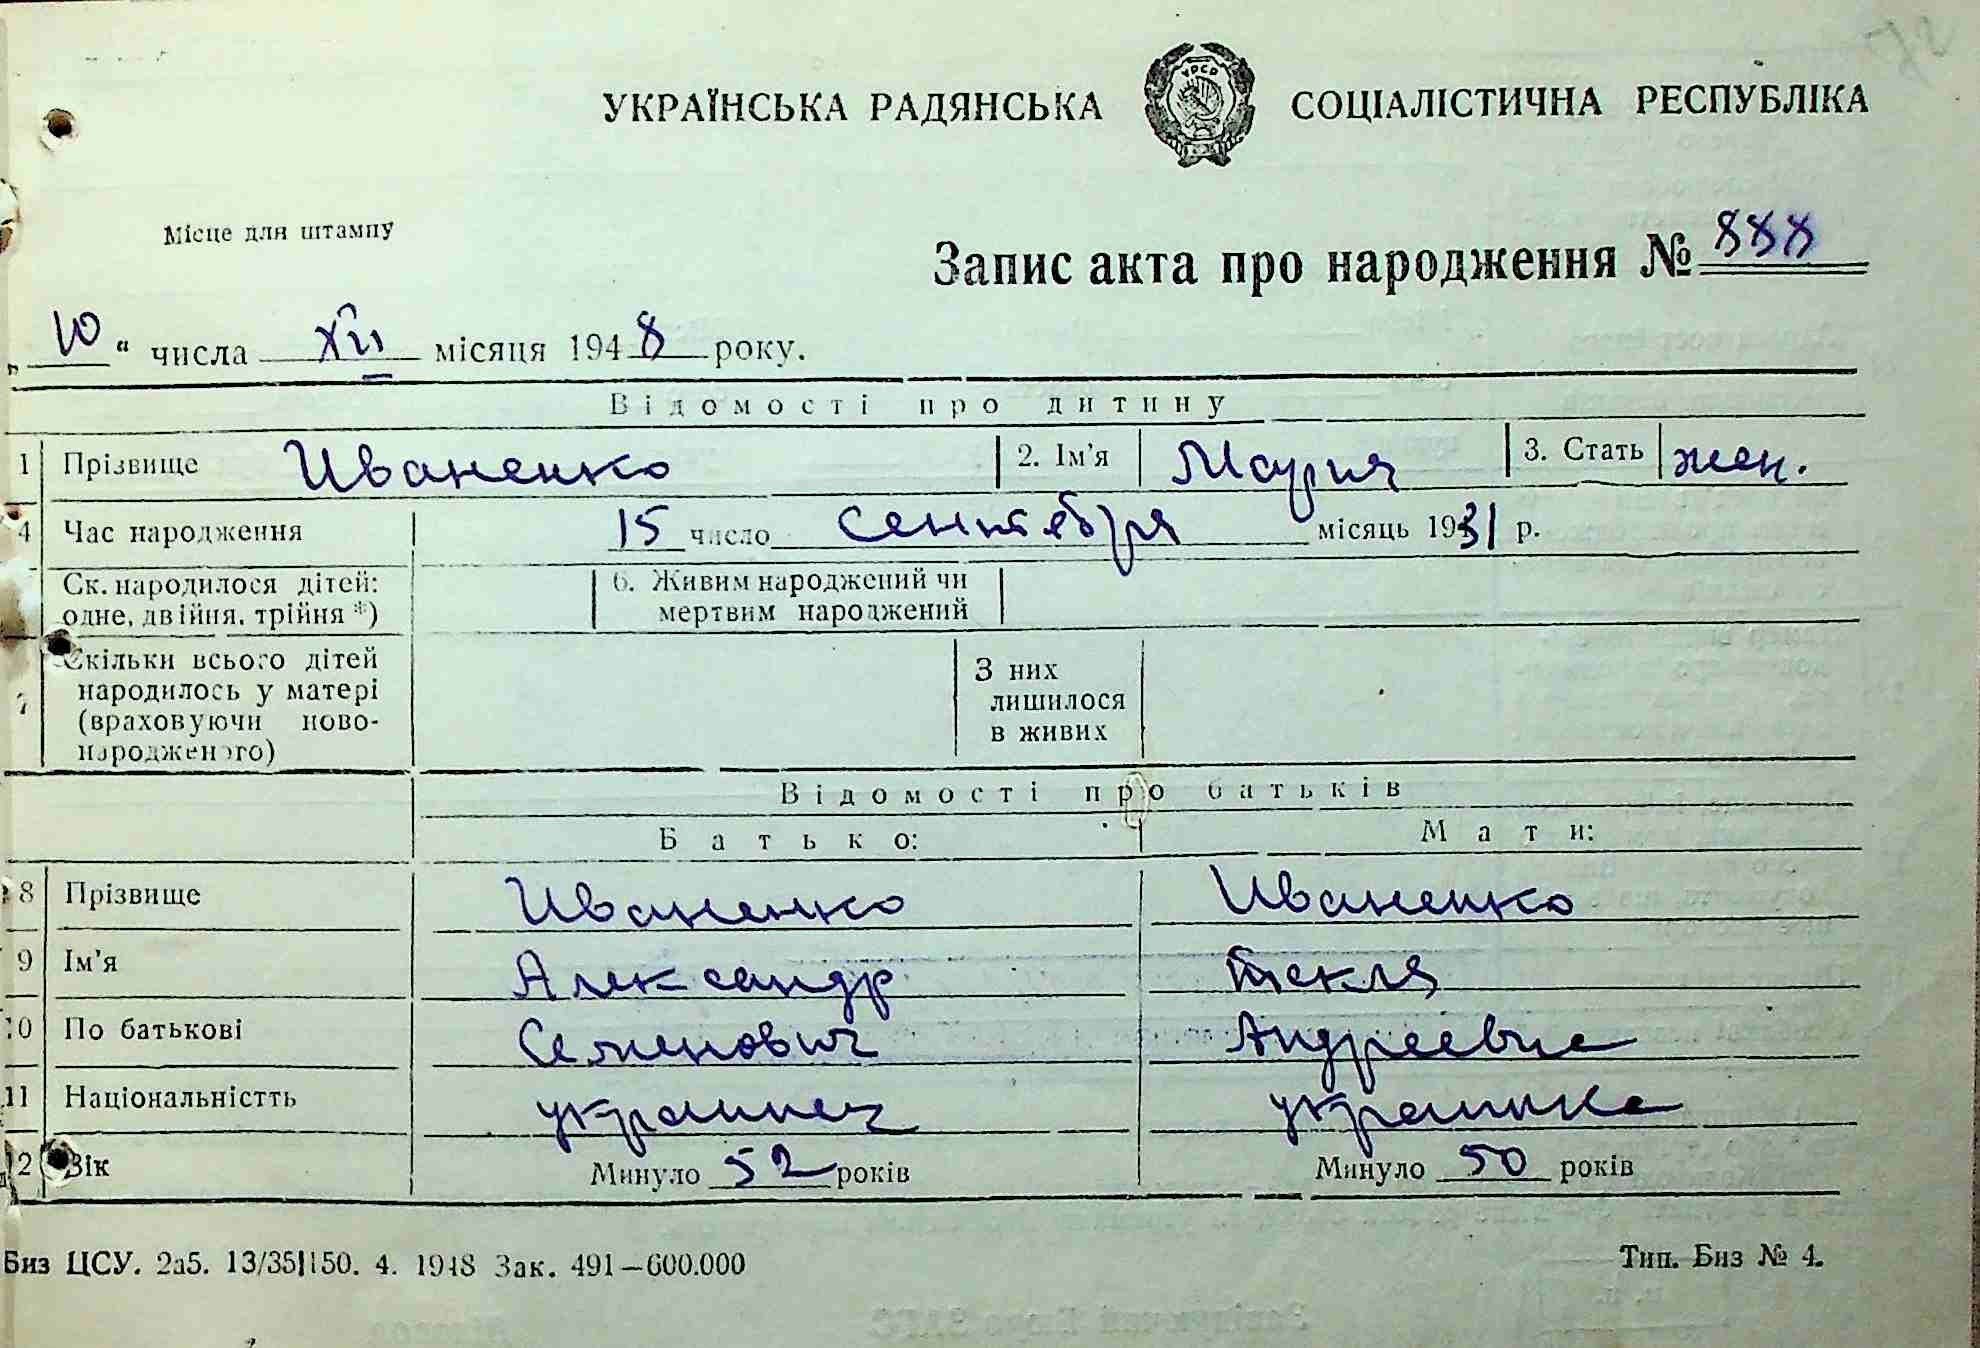 УКРАЇНСЬКА РАДЯНСЬКА СОЦІАЛІСТИЧНА РЕСПУБЛІКА
УРСР
Місце для штампу
Запис акта про народження № 888
„ 10 “ числа XII місяця 1948 року.
Відомості про дитину
1 Прізвище Иваненко 2. Ім'я Мария 3. Стать жен.
4 Час народження 15 число Сентября місяць 1931 р.
Ск. народилося дітей: 6. Живим народжений чи
одне, двійня, трійня *) мертвим народжений
Скільки всього дітей З них
народилось у матері лишилося
7 (враховуючи ново- в живих
народженого)
Відомості про батьків
Батько: Мати:
8 Прізвище Иваненко Иваненко
9 Ім'я Александр Текля
10 По батькові Семенович Андреевна
11 Національністть украинец украинка
12 Вік Минуло 52 років Минуло 50 років
Биз ЦСУ. 2а5. 13/35|150. 4. 1948 Зак. 491—600.000 Тип. Биз № 4.